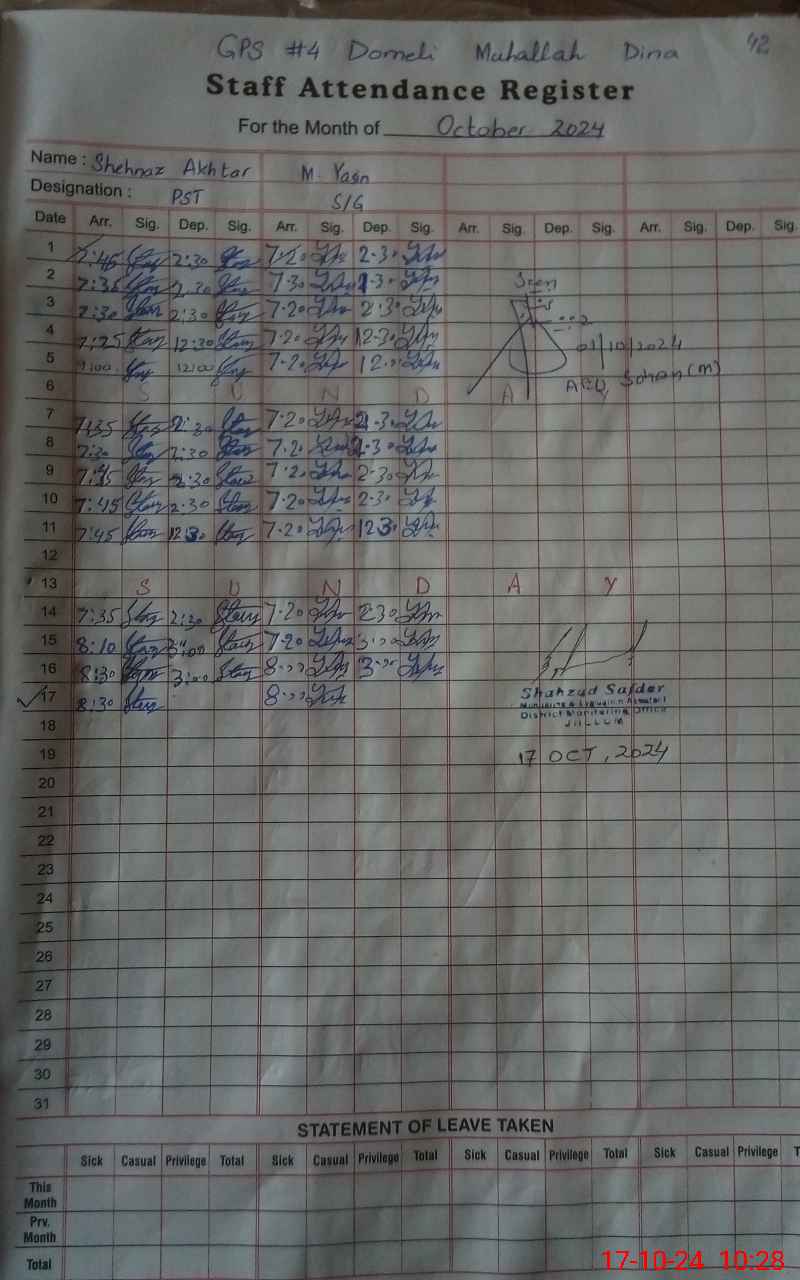 GPS #4 Domeli Muhallah Dina 42
Staff Attendance Register
For the Month of October 2024
Name : Shehnaz Akhtar M. Yasn
Designation : PST S/G
Date Arr. Sig. Dep. Sig. Arr. Sig. Dep. Sig. Arr. Sig. Dep. Sig. Arr. Sig. Dep. Sig.
1 7:45 2:30 7.20 2.30
2 7:35 2.30 7.30 2.30
Seen
3 7:30 2:30 7.20 2.30
4 7:25 12:30 7.20 12.30
01/10/2024
5 12:00 7.20 12.00
AEO, Sohan (m)
6 S U N D A Y
7 7:35 2:30 7.20 2.30
8 7:30 2:30 7.20 2.30
9 2:30 7.20 2.30
10 7:45 2:30 7.20 2.30
11 7:45 12:30 7.20 12.30
12
13 S U N D A Y
14 7:35 2:30 7.20 2.30
15 8:10 3:00 7.20 3.00
16 8:30 3:00 8.00 3.00
17 8:30 8.00
Shahzad Safdar
Monitoring & Evaluation Assistant
District Monitoring Office
JHELUM
18
19 17 OCT, 2024
20
21
22
23
24
25
26
27
28
29
30
31
STATEMENT OF LEAVE TAKEN
Sick Casual Privilege Total Sick Casual Privilege Total Sick Casual Privilege Total Sick Casual Privilege T
This Month
Prv. Month
Total
17-10-24 10:28